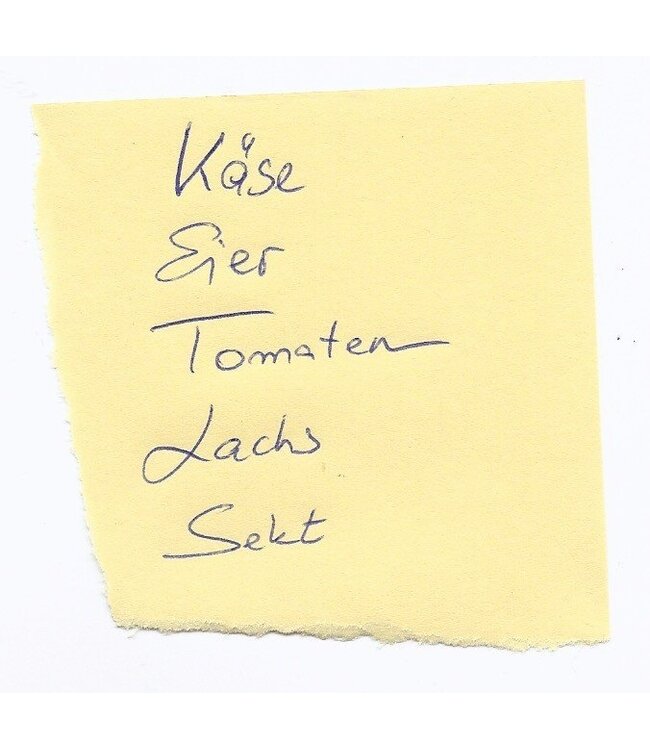 Käse
Eier
Tomaten
Lachs
Sekt